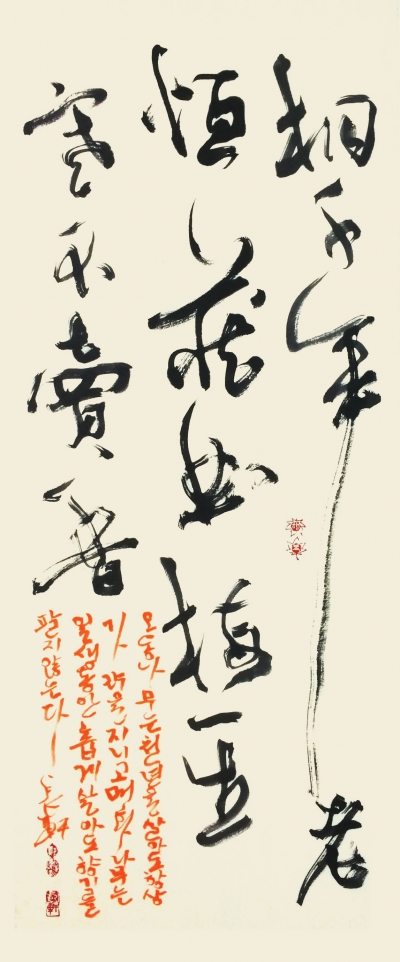 桐千年老
恒藏曲梅一生
寒不賣香
오동나무는 천년을 살아도 항상
가락을 지니고 매화나무는
일생동안 춥게 살아도 향기를
팔지 않는다 軒